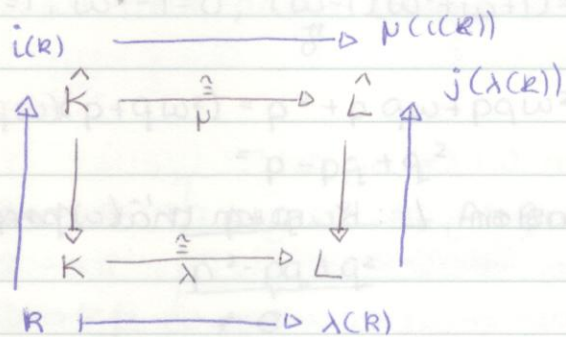 i(k) μ(i(k))
K̂ ≅ L̂ j(λ(k))
μ
≅
K λ L
k λ(k)